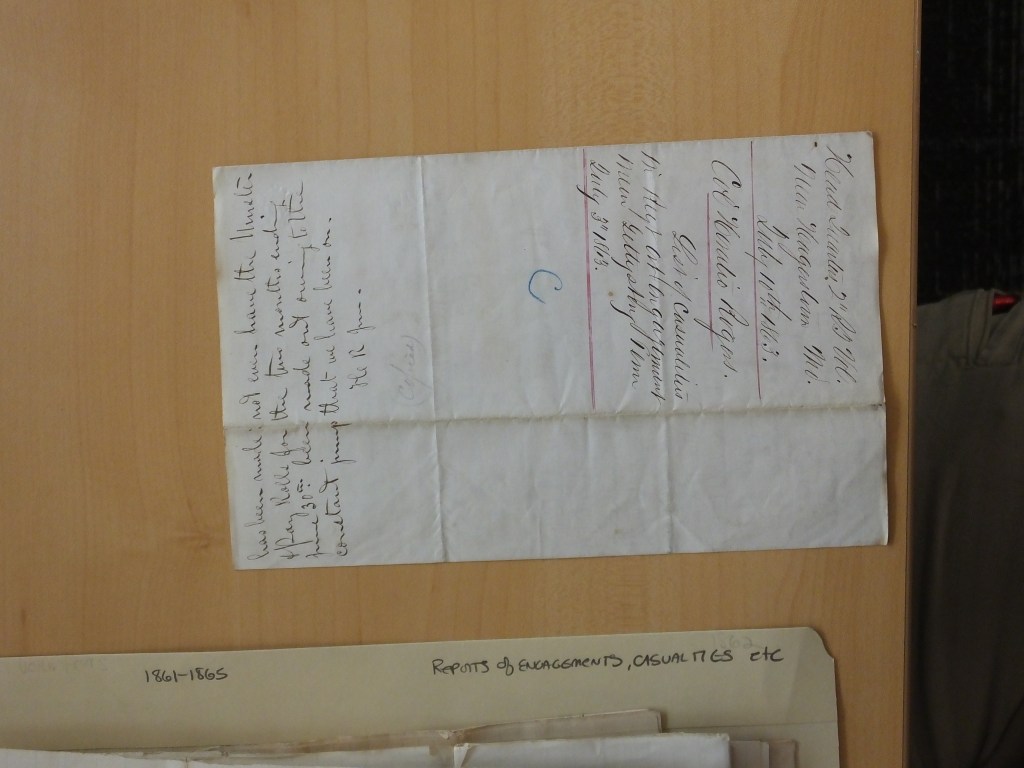 has been made. not even have the Muster
& Pay Rolls for the two months ending
June 30th. been made out owing to the
constant jump that we have been on.
H R Jun.
Copied
Head Quarters 2d R.I. Vol.
Near Hagerstown Md.
July 10th 1863.
Col Horatio Rogers.
List of Casualties
in the engagement
near Gettysburg Penn
July 3d 1863.
C
1861-1865
REPORTS of ENGAGEMENTS, CASUALTIES etc